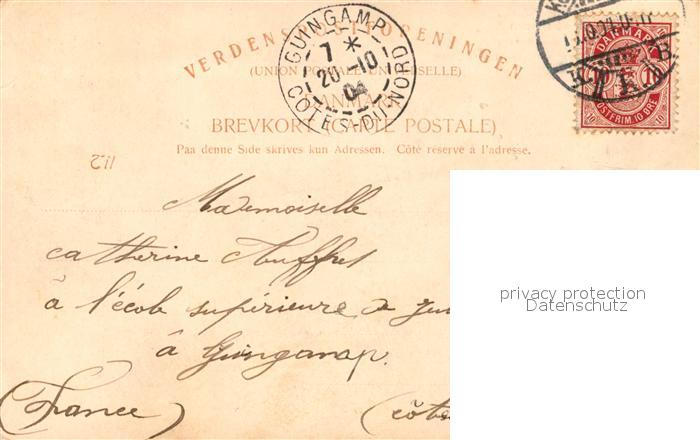 VERDENSPOSTFORENINGEN
(UNION POSTALE UNIVERSELLE)
DANMARK
BREVKORT (CARTE POSTALE)
Paa denne Side skrives kun Adressen. Côté réservé à l'adresse.
GUINGAMP
7 *
20 -10
04
CÔTES-DU-NORD
DANMARK
10 10
POSTFRIM. 10 ØRE
K
B
112
Mademoiselle
Catherine
à l'école supérieure de
à Guingamp.
(France) (côtes
privacy protection
Datenschutz